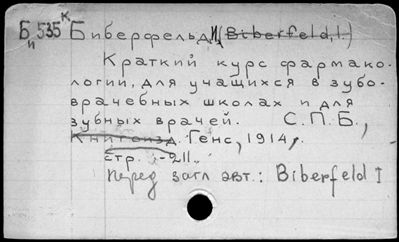 Б 535 К Биберфельд, И. (Biberfeld, I.)
и
Краткий курс фармако-
логии, для учащихся в зубо-
врачебных школах и для
зубных врачей. С.П.Б.,
Книгоизд. Генс, 1914,.
стр. -211.
перед загл авт.: Biberfeld I